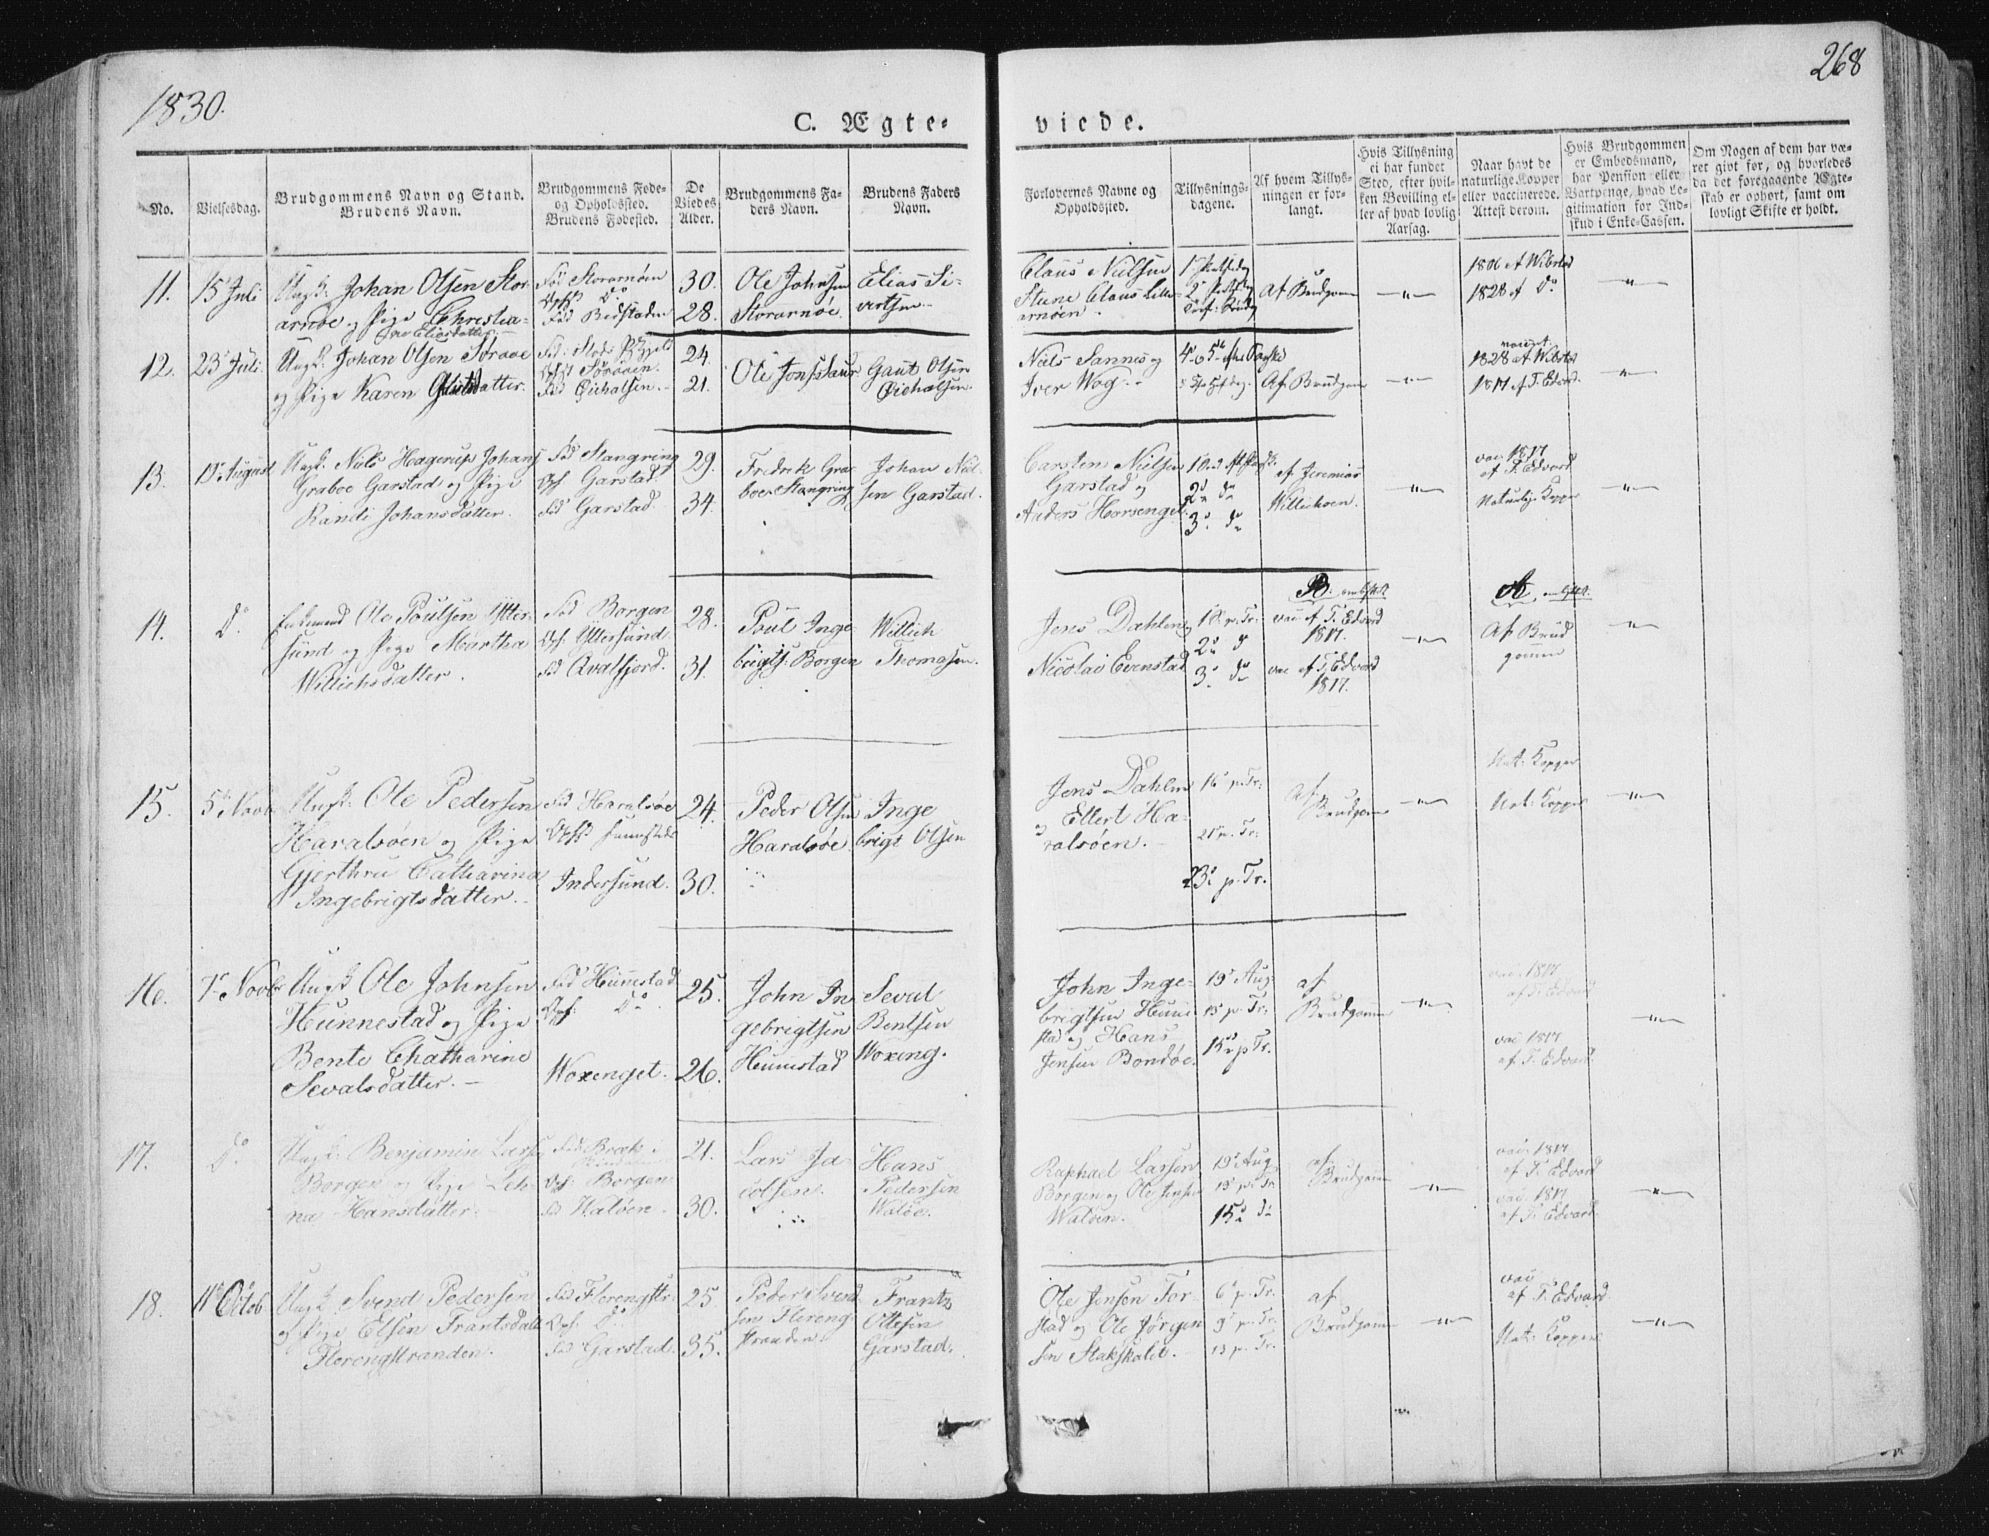 1830.
268
C. Ægte-
viede.
No.
Vielsesdag.
Brudgommens Navn og Stand.
Brudens Navn.
Brudgommens Føde-
og Opholdssted.
Brudens Fødested.
De
Viedes
Alder.
Brudgommens Fa-
ders Navn.
Brudens Faders
Navn.
Forlovernes Navne og
Opholdssted.
Tillysnings-
dagene.
Af hvem Tillys-
ningen er for-
langt.
Hvis Tillysning
ei har fundet
Sted, efter hvil-
ken Bevilling el-
ler af hvad lovlig
Aarsag.
Naar havt de
naturlige Kopper
eller vaccinerede.
Attest derom.
Hvis Brudgommen
er Embedsmand,
har Pension eller
Vartpenge, hvad Le-
gitimation for Ind-
skud i Enke-Cassen.
Om Nogen af dem har væ-
ret gift før, og hvorledes
da det foregaaende Ægte-
skab er ophørt, samt om
lovligt Skifte er holdt.
11.
15 Juli
Ungk: Johan Olsen Stor-
arnøe og Pige Christia-
Eliasdatter
Fød Storarnøen
Opst Do
Fød Bedstaden
30.
28.
Ole Johnsen
Storarnøe.
Elias Si-
vertsen.
Claus Nielsen
Stune Claus Lille-
arnøen.
Af Brudgom
1806 af Wibstad
1828 af Do
12.
23 Juli
Ungk. Johan Olsen Sørøe
og Pige Karen datter.
24.
21.
Ole
Gaut Olsen
Niels Sannes og
Iver Wog.
Af Brudgom
1828 af Wibstad
1817 af T. Edvard.
13.
19 August
Ungk: Niels Hagerup Johans
Graboe Garstad og Pige
Randi Johansdatter.
Fød Stangring
Opst Garstad.
Fød Garstad.
29.
34.
Fredrik Gra-
boe Stangring
Johan Niel-
sen Garstad.
Carsten Nielsen
Garstad og
Anders Horsenget.
2 do
3. do
af Jeremias
Willichsen.
vac 1817
af T. Edvard
Naturlige Kopper
14.
Do
Enkemand Ole Poulsen Ytter-
sund og Pige Martha
Willichsdatter.
Fød Borgen
Opst Yttersund
Fød Qvalfjord.
28.
31.
Poul Inge
brigts: Borgen
Willich
Thomasen.
Jens Dahlen
Nicolai Evenstad
18. p. Tr.
2 do
3. do
B.
vac af T. Edvard
1817.
vac af T. Edvard
1817.
A
Af Brud
gommen
15.
5 Novb
Ungk: Ole Pedersen
Haralsøen og Pige
Gjerthru Catharina
Ingebrigtsdatter.
Fød Haralsøe
Opst sammesteds
Indersund.
24.
30.
Peder Olsen
Haralsøe
Inge
brigt Olsen
Jens Dahlen
og Ellert Ha-
ralsøen.
16 p. Tr.
21 p. Tr.
23. p. Tr.
af
Brudgom
Nat: Kopper
Nat: Kopper
16.
7 Novbr
Ungk Ole Johnsen
Hunnestad og Pige
Bente Chatharine
Sevalsdatter.
Fød Hunnestad
Opst: Do
Woxenget.
25.
26.
John In
gebrigtsen
Hunnestad
Seval
Bentsen
Woxeng.
John Inge-
brigtsen Hunne
stad og Hans
Jensen Bondøe.
19 Aug
13 p. Tr.
15 p Tr.
af
Brudgommen
vac 1817
af T. Edvard
vac 1817
af T. Edvard
17.
Do
Ungk: Benjamin Larsen
Borgen og Pige Leh-
na Hansdatter.
Fød Bræk i
Opst: Borgen
Fød Waløen.
21.
30.
Lars Ja-
cobsen.
Hans
Pedersen
Waløe.
Raphael Larsen
Borgen og Ole Jensen
Waløen.
19 Aug
13 p. Tr
15 do
af
Brudgommen
vac 1817
af T. Edvard
vac 1817
af T. Edvard
18.
11 Octob
Ungk Svend Pedersen
og Pige Elsen Frantsdatt
Flerengstranden.
Fød Flerengstr
Opst: Do
Fød Garstad.
25.
35.
Peder Svend
sen Flereng
stranden
Frantz
Ottesen
Garstad.
Ole Jensen For-
stad og Ole Jørgen
sen Stakskalet.
6 p. Tr.
9 p. Tr.
13 p. Tr.
af
Brudgommen
vac
af T. Edvard
Nat: Kopper